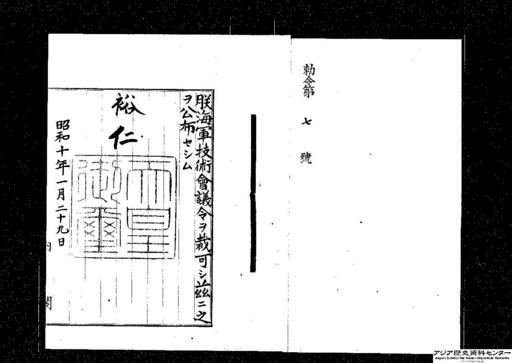 勅令第七號
朕海軍技術會議令ヲ裁可シ茲ニ之
ヲ公布セシム
裕仁
天皇御璽
昭和十年一月二十九日
内閣
アジア歴史資料センター
Japan Center for Asian Historical Records